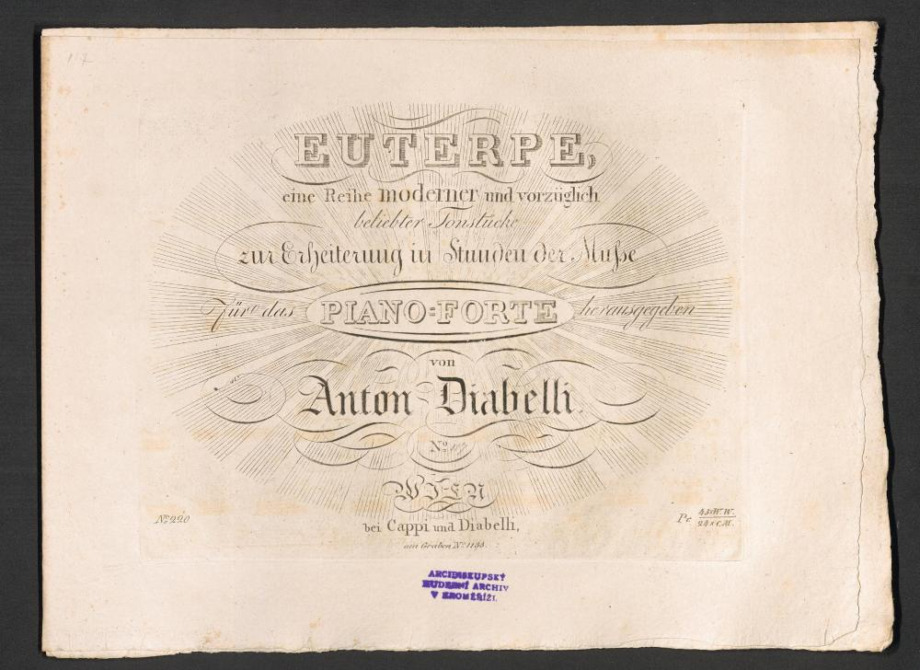 EUTERPE,
eine Reihe moderner und vorzüglich
beliebter Tonstücke
zur Erheiterung in Stunden der Muſse
Für das PIANO=FORTE herausgegeben
von
Anton Diabelli.
No.
WIEN
bei Cappi und Diabelli,
am Graben No. 1133.
No. 220
Pr.
ARCIBISKUPSKÝ
HUDEBNÍ ARCHIV
V KROMĚŘÍŽI.